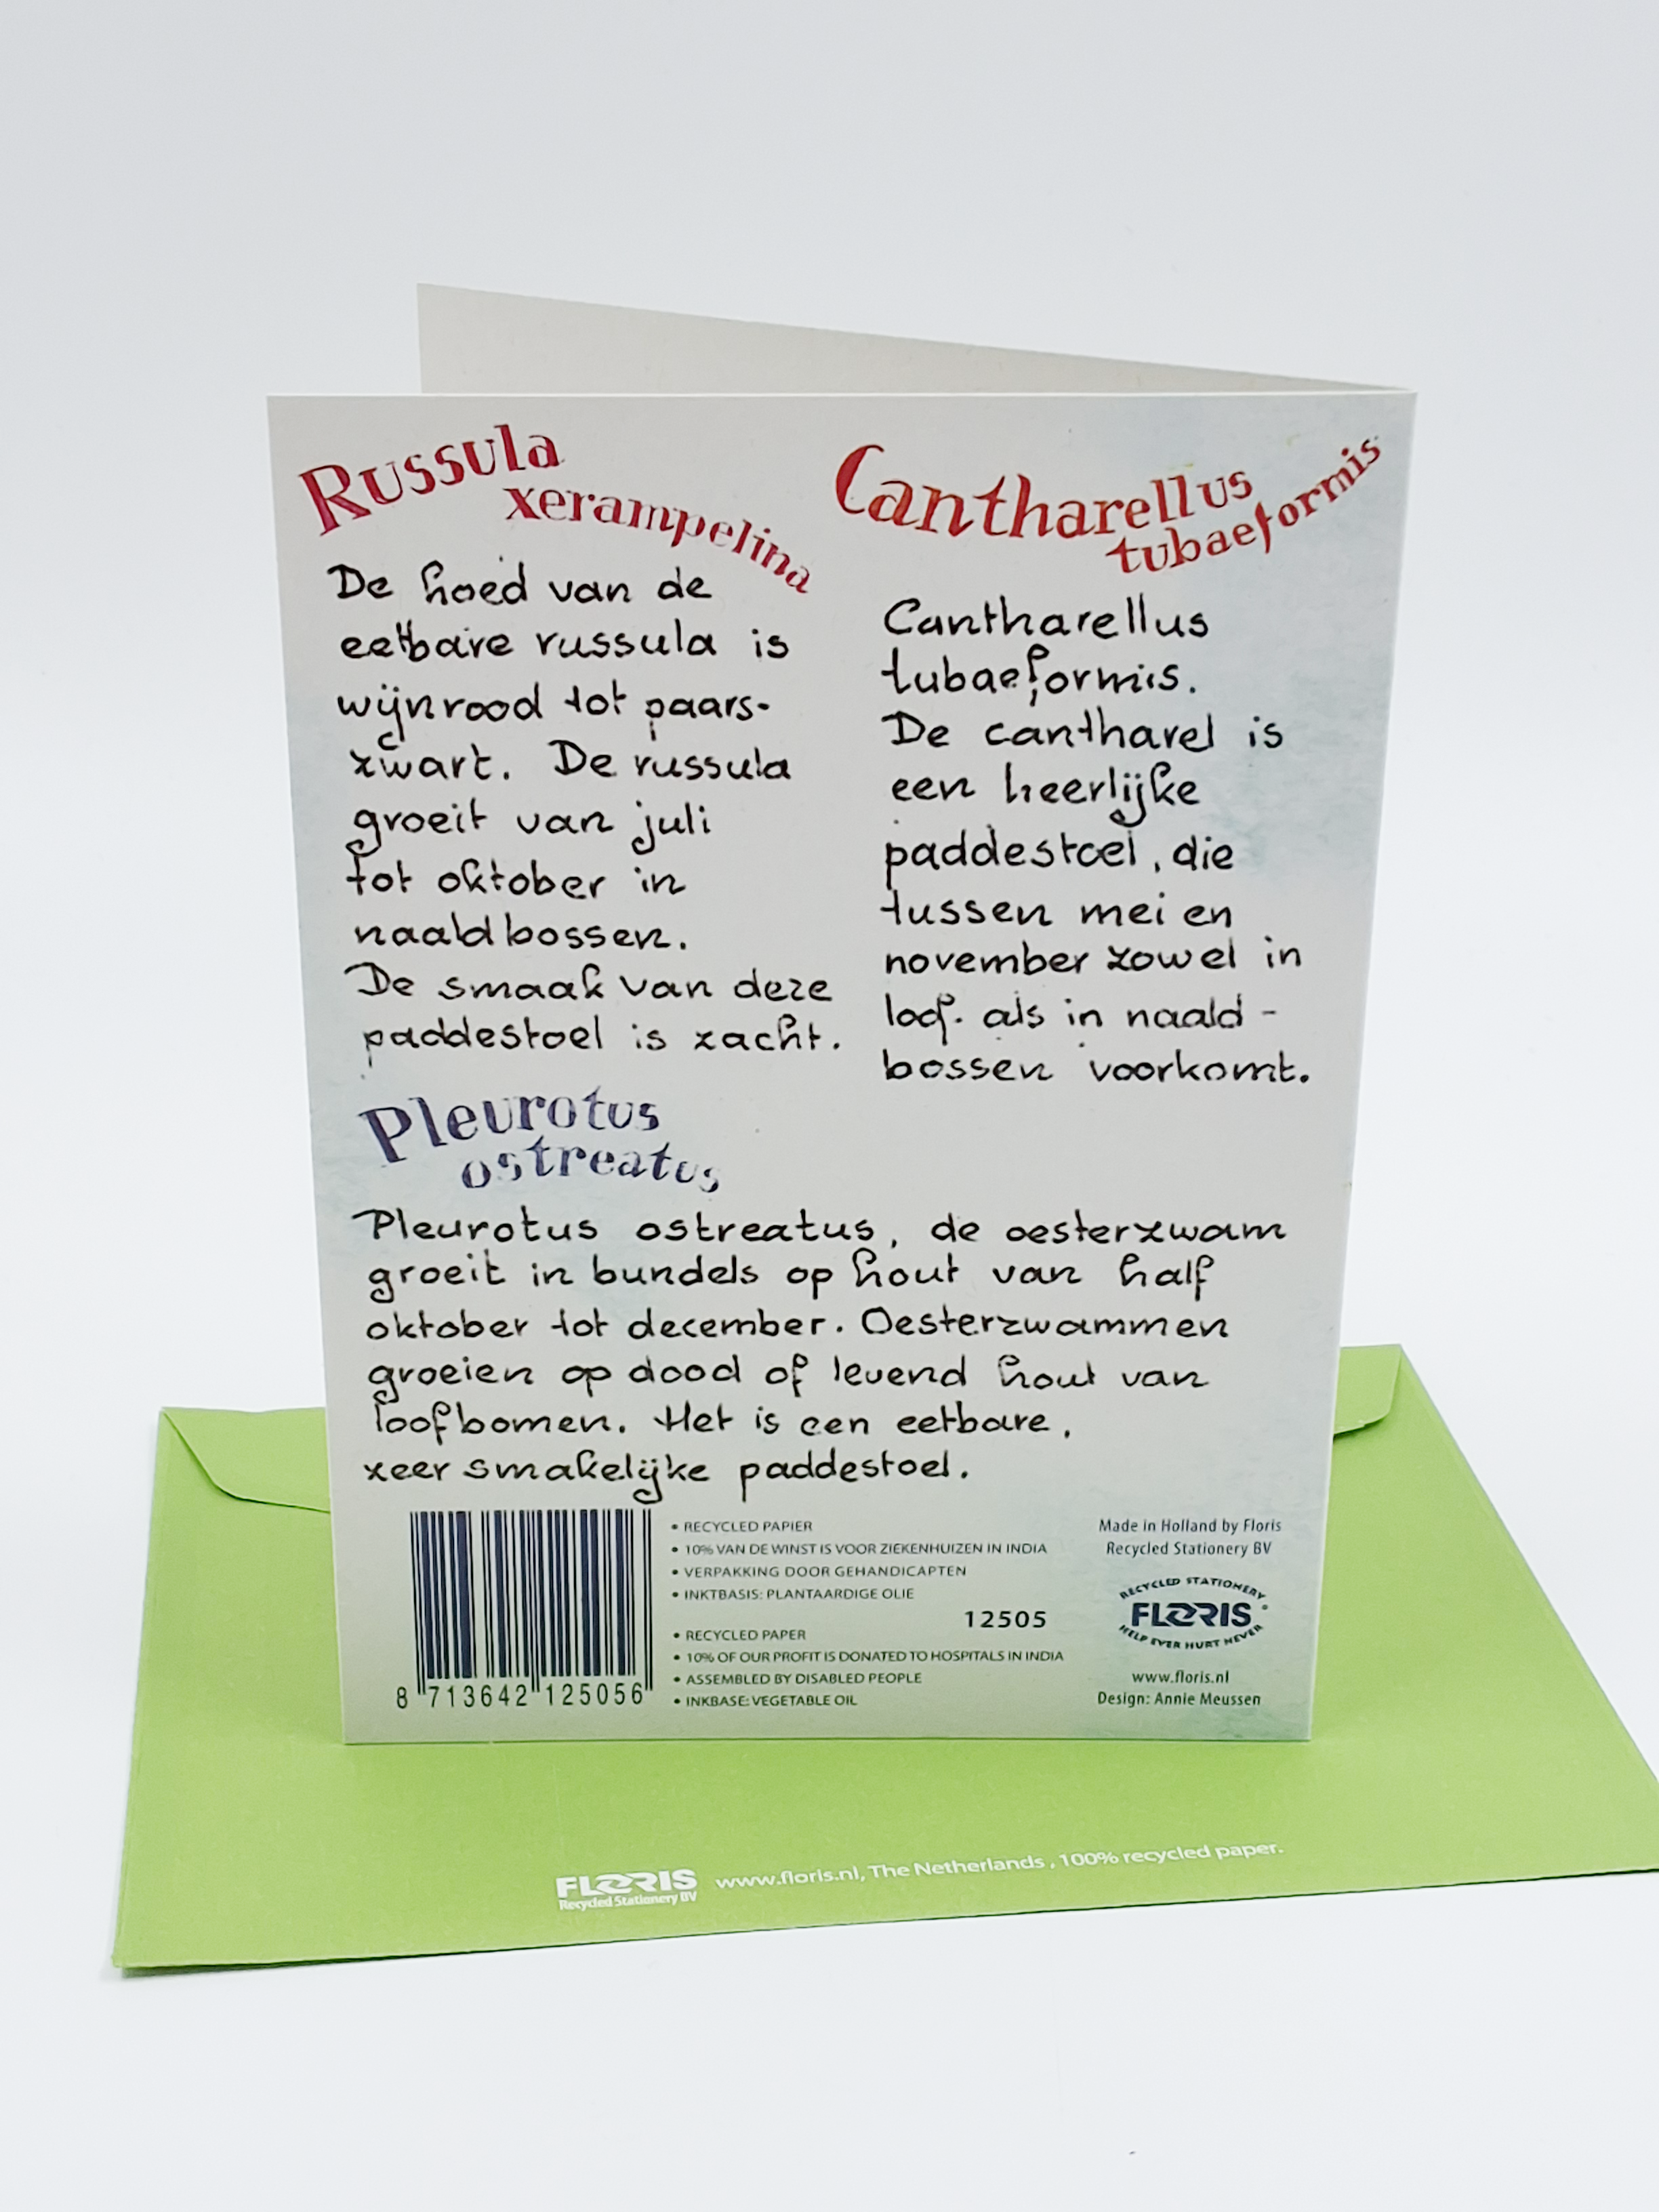 Russula
xerampelina
De hoed van de
eetbare russula is
wijnrood tot paars-
zwart. De russula
groeit van juli
tot oktober in
naaldbossen.
De smaak van deze
paddestoel is zacht.
Cantharellus
tubaeformis
Cantharellus
tubaeformis.
De cantharel is
een heerlijke
paddestoel, die
tussen mei en
november zowel in
loof- als in naald-
bossen voorkomt.
Pleurotus
ostreatus
Pleurotus ostreatus, de oesterzwam
groeit in bundels op hout van half
oktober tot december. Oesterzwammen
groeien op dood of levend hout van
loofbomen. Het is een eetbare,
zeer smakelijke paddestoel.
8 713642 125056
• RECYCLED PAPIER
• 10% VAN DE WINST IS VOOR ZIEKENHUIZEN IN INDIA
• VERPAKKING DOOR GEHANDICAPTEN
• INKTBASIS: PLANTAARDIGE OLIE
12505
• RECYCLED PAPER
• 10% OF OUR PROFIT IS DONATED TO HOSPITALS IN INDIA
• ASSEMBLED BY DISABLED PEOPLE
• INKBASE: VEGETABLE OIL
Made in Holland by Floris
Recycled Stationery BV
RECYCLED STATIONERY
FLORIS®
HELP EVER HURT NEVER
www.floris.nl
Design: Annie Meussen
FLORIS
Recycled Stationery BV
www.floris.nl, The Netherlands, 100% recycled paper.